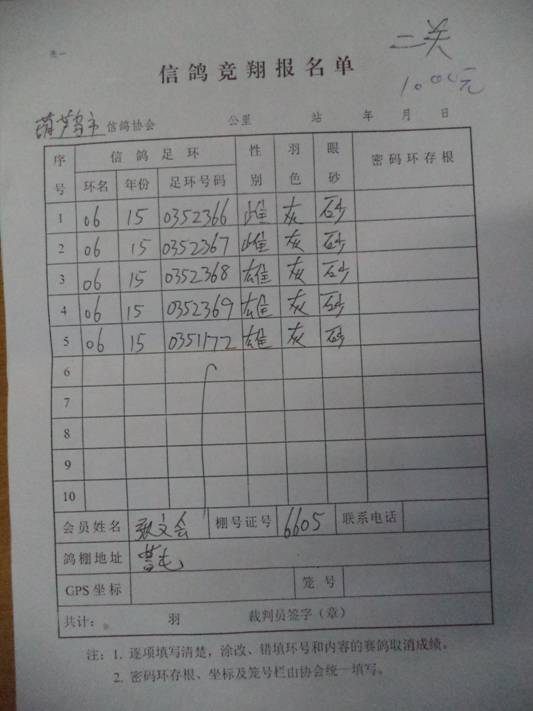 表一
二关
1000元
信鸽竞翔报名单
葫芦岛市信鸽协会 公里 站 年 月 日
序号 信鸽足环 性别 羽色 眼砂 密码环存根
环名 年份 足环号码
1 06 15 0352366 雌 灰 砂
2 06 15 0352367 雌 灰 砂
3 06 15 0352368 雄 灰 砂
4 06 15 0352369 雄 灰 砂
5 06 15 0351172 雄 灰 砂
6
7
8
9
10
会员姓名 文会 棚号证号 6605 联系电话
鸽棚地址
GPS坐标 笼号
共计: 羽 裁判员签字(章)
注:1. 逐项填写清楚,涂改、错填环号和内容的赛鸽取消成绩。
2. 密码环存根、坐标及笼号栏由协会统一填写。